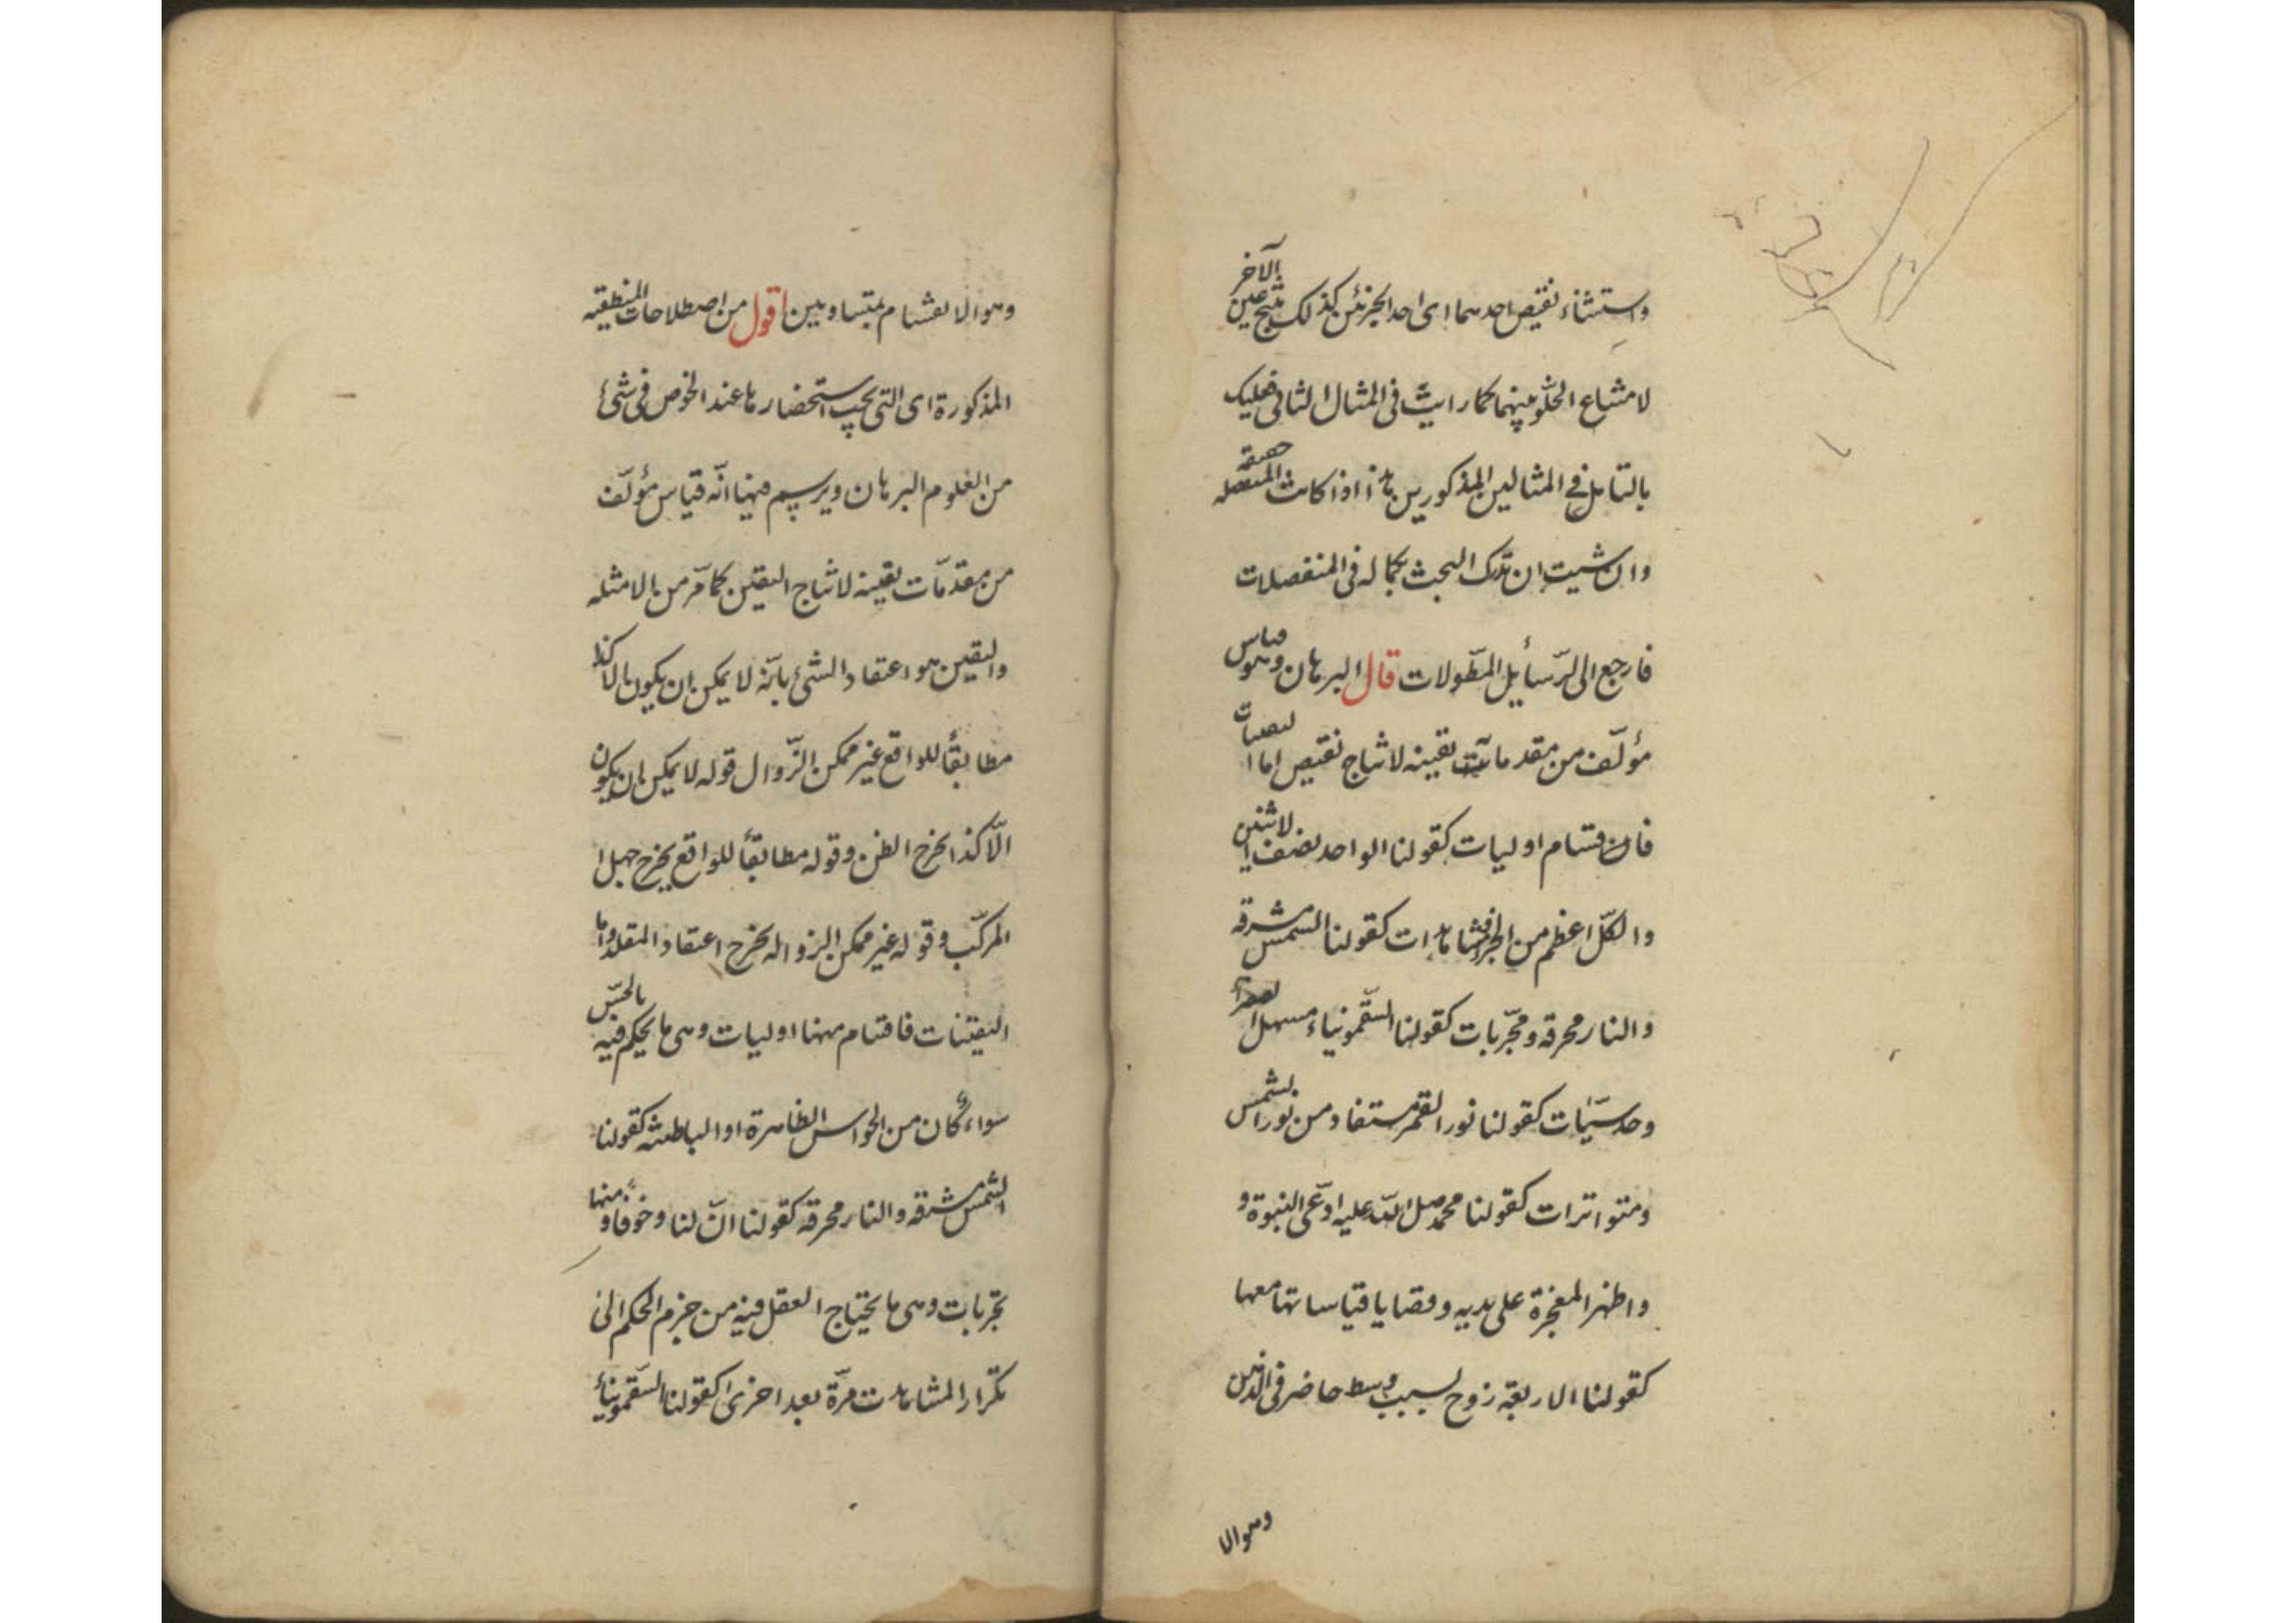 واستثناء نقيض احدهما اى احد الجزئين كذلك ينتج عين الآخر
لامتناع الخلو بينهما كما رايت فى المثال الثانى فعليك
بالتامل فى المثالين المذكورين هذا اذا كانت المنفصله حقيقه
وان شيت ان تدرك البحث بكماله فى المنفصلات
فارجع الى الرّسأيل المطّولات قال البرهان وهو قياس
مؤلّف من مقدمات يقينه لانتاج نقيض اما
فان قسام اوليات كقولنا الواحد نصف الاثنين
والكلّ اعظم من الجزء ومشاهدات كقولنا الشمس مشرقه
والنار محرقه ومجّربات كقولنا السّقمونياء مسهل
وحدسيّات كقولنا نور القمر مستفاد من نور الشمس
ومتواترات كقولنا محمد صلى الله عليه ادّعى النبوة و
واظهر المعجزة على يديه وقضايا قياساتها معها
كقولنا الاربعة زوج لسبب وسط حاضر فى الذهن
وهوالا
وهوالانقسام بمتساويين اقول من اصطلاحات المنطقيه
المذكورة اى التى يجب استحضارها عند الخوص فى شئ
من العلوم البرهان ويرسم منها انّه قياس مؤلّف
من مقدمّات يقينه لانتاج اليقين كما مرّ من بالامثله
واليقين هو اعتقاد الشئ بانّه لا يمكن ان يكون بالا كذا
مطابقاً للواقع غير ممكن الزّوال قوله لا يمكن ان يكون
الّا كذا يخرج الظن وقوله مطابقاً للواقع يخرج جهل ا
المركّب وقوله غير ممكن الزواله يخرج اعتقاد المقلد واما
اليقتنات فاقتام منها اوليات وهى ما يحكم فيه بالحسّ
سواء كان من الحواس الظاهرة او الباطنه كقولنا
الشمس مشرقه والنار محرقه كقولنا انّ لنا وخوفا ومنها
تجرّبات وهى ما يحتاج العقل فيه من جزم الحكم الى
تكّرار المشاهدت مرّة بعد اخرى كقولنا السّقمونياء